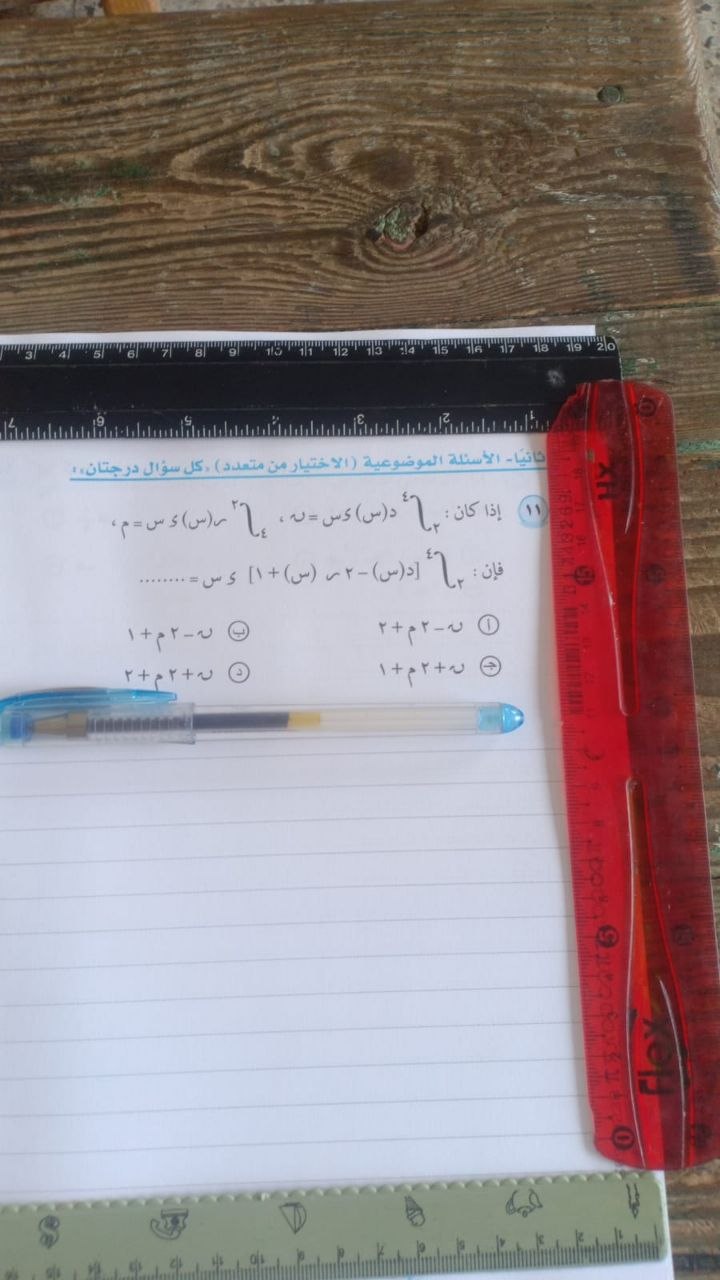 3 4 5 6 7 8 9 10 11 12 13 14 15 16 17 18 19 20
7 6 5 4 3 2 1
ثانيًا- الأسئلة الموضوعية (الاختيار من متعدد) «كل سؤال درجتان»:
١١ إذا كان: ∫₂⁴ د(س) ء س = ن ، ∫₄² ر(س) ء س = م ،
فإن: ∫₂⁴ [د(س) − ٢ ر (س) + ١] ء س = ........
أ ن − ٢ م + ٢ ب ن − ٢ م + ١
ج ن + ٢ م + ١ د ن + ٢ م + ٢
Flex